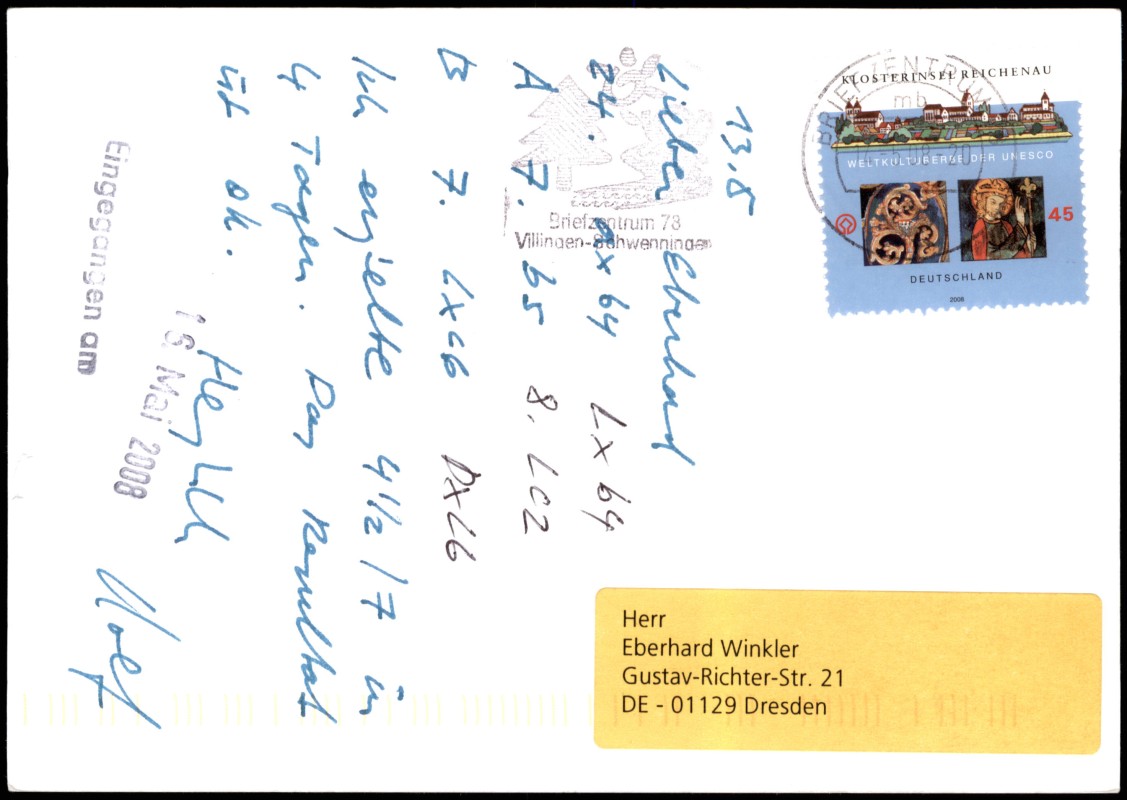 13.5
Lieber Eberhard
24. axb4 Lxb4
A 7. b5 8. Lc2
B 7. Lxc6 Dxc6
Ich erzielte 4½ / 7 in
4 Tagen. Das Resultat
ist ok.
Herzlich
Eingegangen am
16. Mai 2008
BRIEFZENTRUM
mb
Briefzentrum 78
Villingen-Schwenningen
KLOSTERINSEL REICHENAU
WELTKULTURERBE DER UNESCO
45
DEUTSCHLAND
2008
Herr
Eberhard Winkler
Gustav-Richter-Str. 21
DE - 01129 Dresden